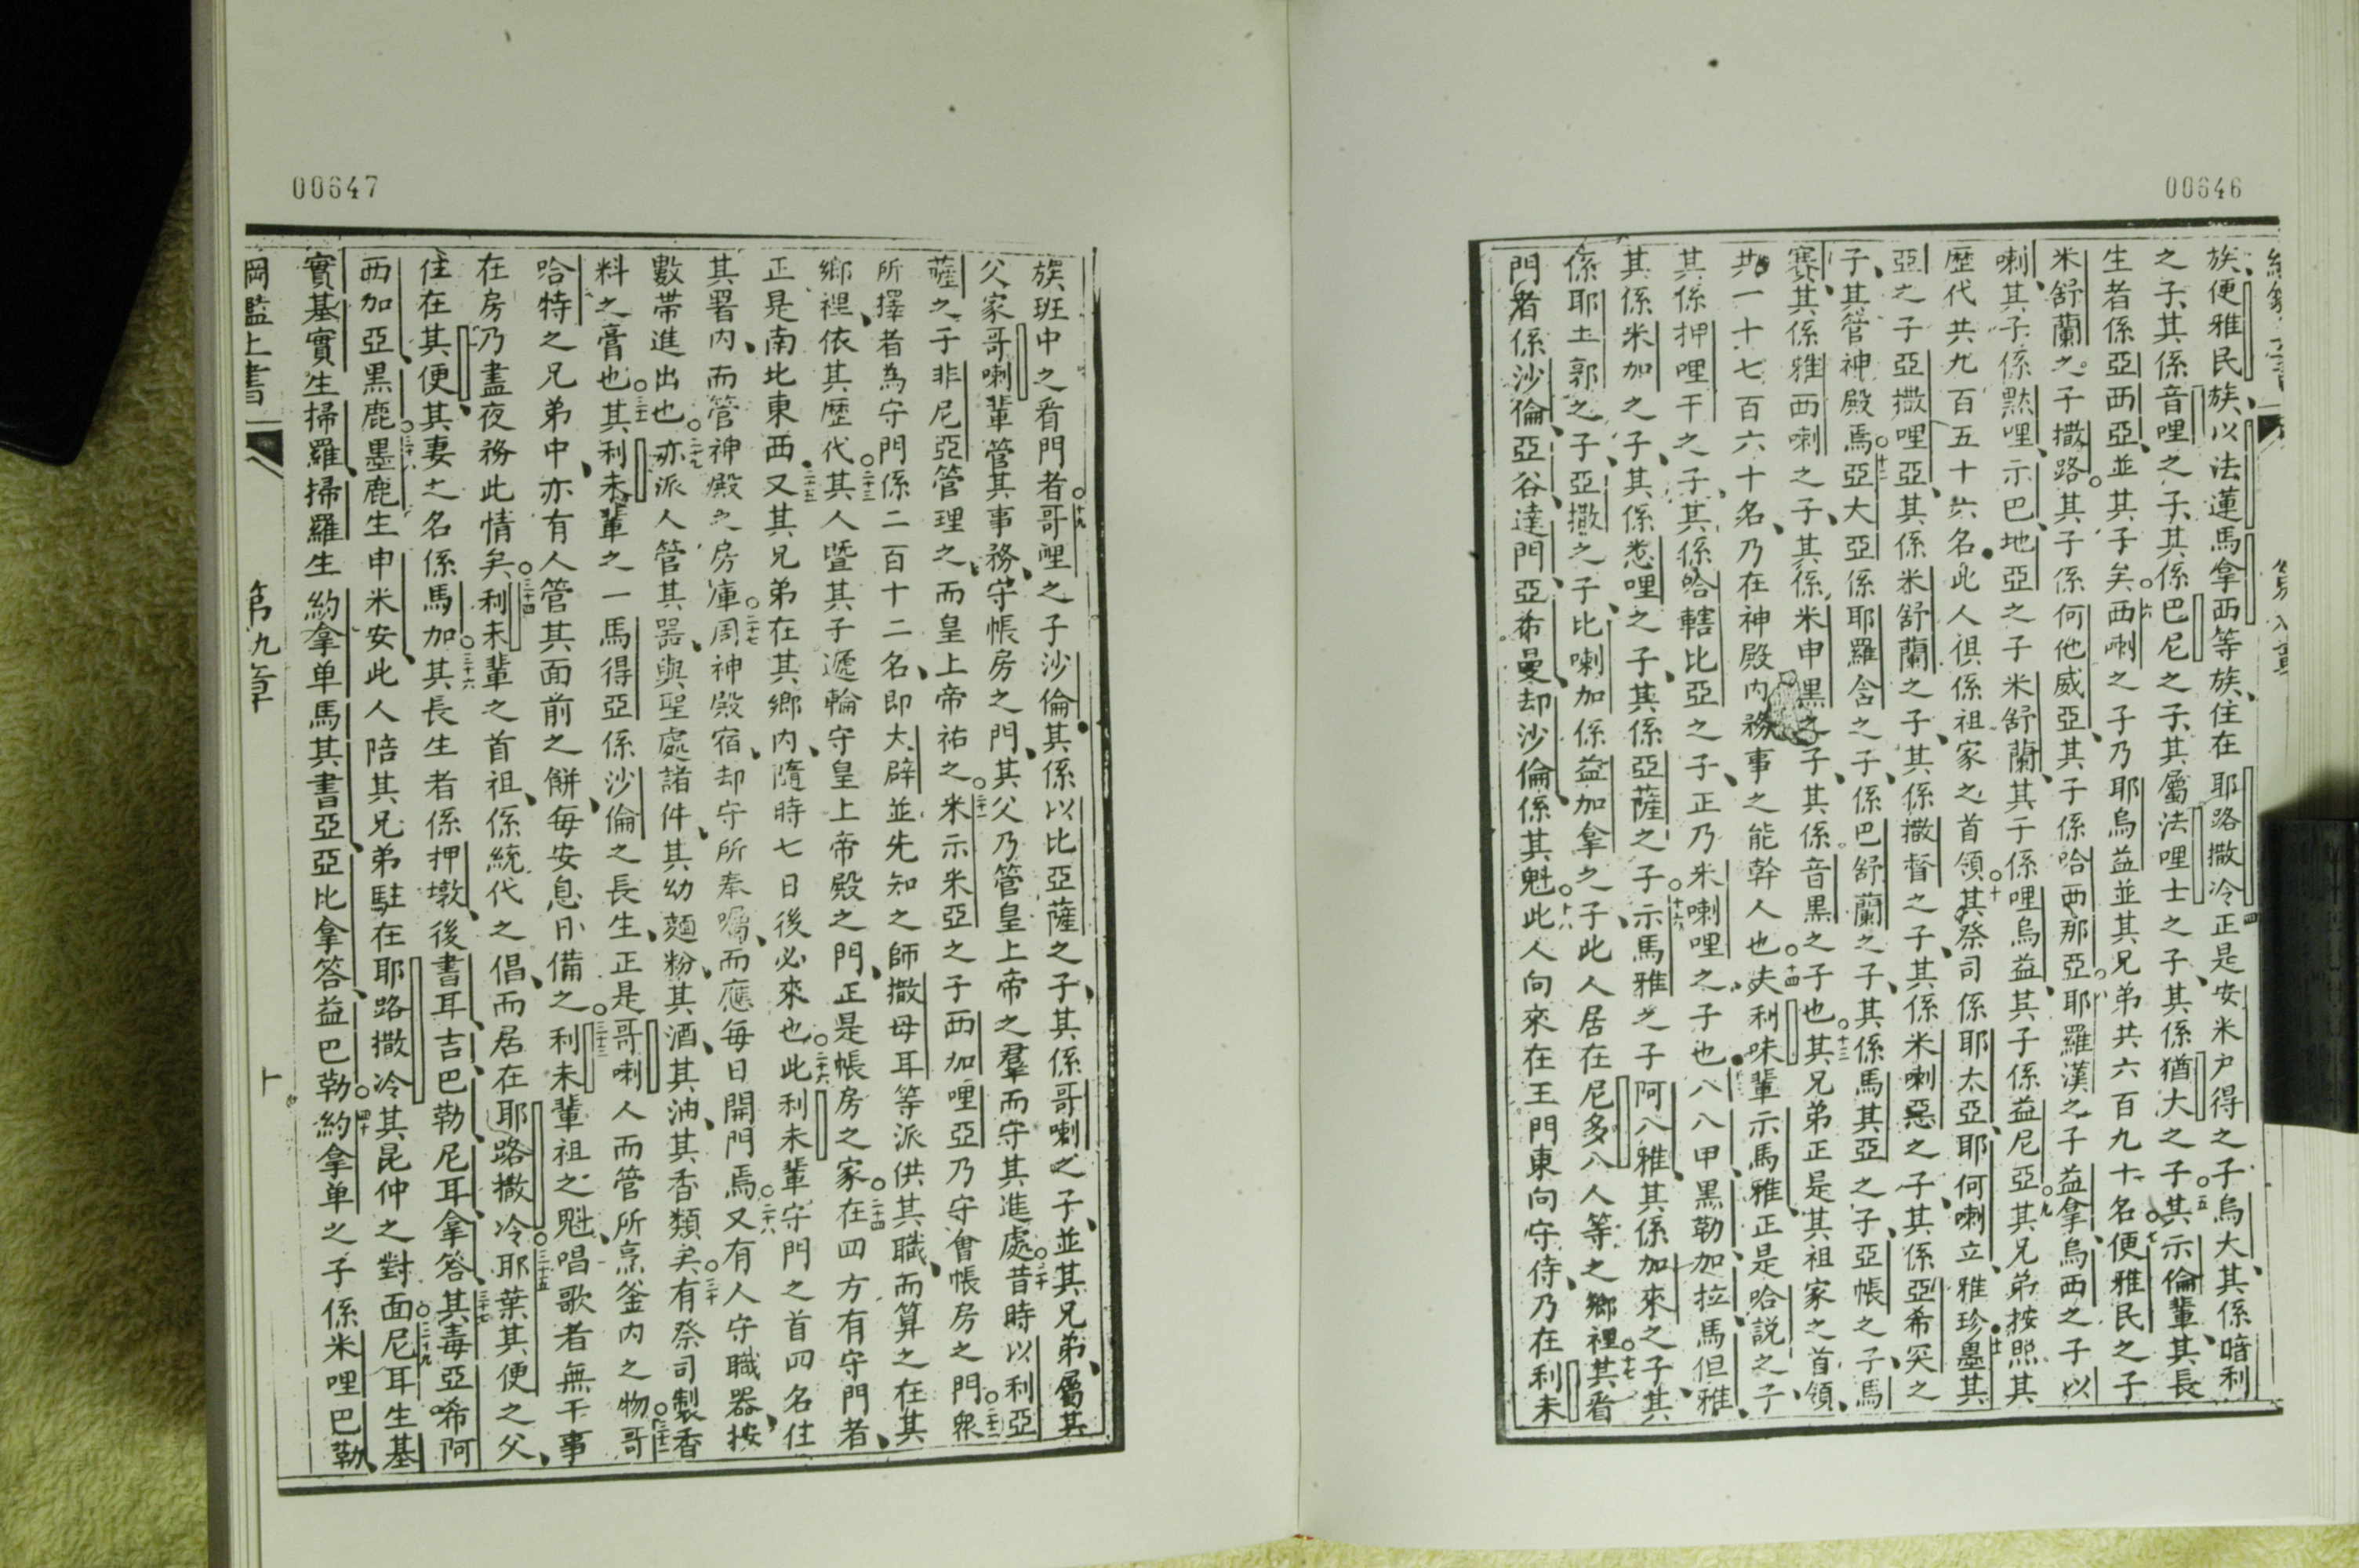 00646
族便雅民族以法蓮馬拿西等族住在耶路撒冷四正是安米户得之子烏大其係暗利
之子其係音哩之子其係巴尼之子其屬法哩士之子其係猶大之子五其示倫輩其長
生者係亞西亞並其子矣六西喇之子乃耶烏益並其兄弟共六百九十名七便雅民之子
米舒蘭之子撒路其子係何他威亞其子係哈西那亞八耶羅漢之子益拿烏西之子以
喇其子係黙哩示巴地亞之子米舒蘭其子係哩烏益其子係益尼亞九其兄弟按照其
歷代共九百五十六名此人俱係祖家之首領十其祭司係耶太亞耶何喇立雅珍十一墨其
亞之子亞撒哩亞其係米舒蘭之子其係撒督之子其係米喇惡之子其係亞希突之
子其管神殿焉十二亞大亞係耶羅含之子係巴舒蘭之子其係馬其亞之子亞帳之子馬
賽其係雅西喇之子其係米申黑之子其係音黑之子也十三其兄弟正是其祖家之首領
共一十七百六十名乃在神殿内務事之能幹人也十四夫利味輩示馬雅正是哈説之子
其係押哩干之子其係哈轄比亞之子正乃米喇哩之子也八八甲黑勒加拉馬但雅
其係米加之子其係悉哩之子其係亞薩之子十六示馬雅之子阿八雅其係加來之子其
係耶土郭之子亞撒之子比喇加係益加拿之子此人居在尼多八人等之鄉裡十七其看
門者係沙倫亞谷達門亞希曼却沙倫係其魁十八此人向來在王門東向守侍乃在利未
00647
族班中之看門者十九哥哩之子沙倫其係以比亞薩之子其係哥喇之子並其兄弟屬其
父家哥喇輩管其事務守帳房之門其父乃管皇上帝之羣而守其進處二十昔時以利亞
薩之子非尼亞管理之而皇上帝祐之二十一米示米亞之子西加哩亞乃守會帳房之門二十二衆
所擇者為守門係二百十二名即大辟並先知之師撒母耳等派供其職而算之在其
鄉裡依其歷代二十三其人暨其子遞輪守皇上帝殿之門正是帳房之家二十四在四方有守門者
正是南北東西二十五又其兄弟在其鄉内隨時七日後必來也二十六此利未輩守門之首四名住
其署内而管神殿之房庫二十七周神殿宿却守所奉囑而應每日開門焉二十八又有人守職器按
數帶進出也二十九亦派人管其器與聖處諸件其幼麵粉其酒其油其香類矣三十有祭司製香
料之膏也三十一其利未輩之一馬得亞係沙倫之長生正是哥喇人而管所烹釜内之物三十二哥
哈特之兄弟中亦有人管其面前之餅每安息日備之三十三利未輩祖之魁唱歌者無干事
在房乃晝夜務此情矣三十四利未輩之首祖係統代之倡而居在耶路撒冷三十五耶葉其便之父
住在其便其妻之名係馬加三十六其長生者係押墩後書耳吉巴勒尼耳拿答三十七其毒亞希阿
西加亞黑鹿三十八墨鹿生申米安此人陪其兄弟駐在耶路撒冷其昆仲之對面三十九尼耳生基
實基實生掃羅掃羅生約拿单馬其書亞亞比拿答益巴勒四十約拿单之子係米哩巴勒
綱鑑上書一
第九章